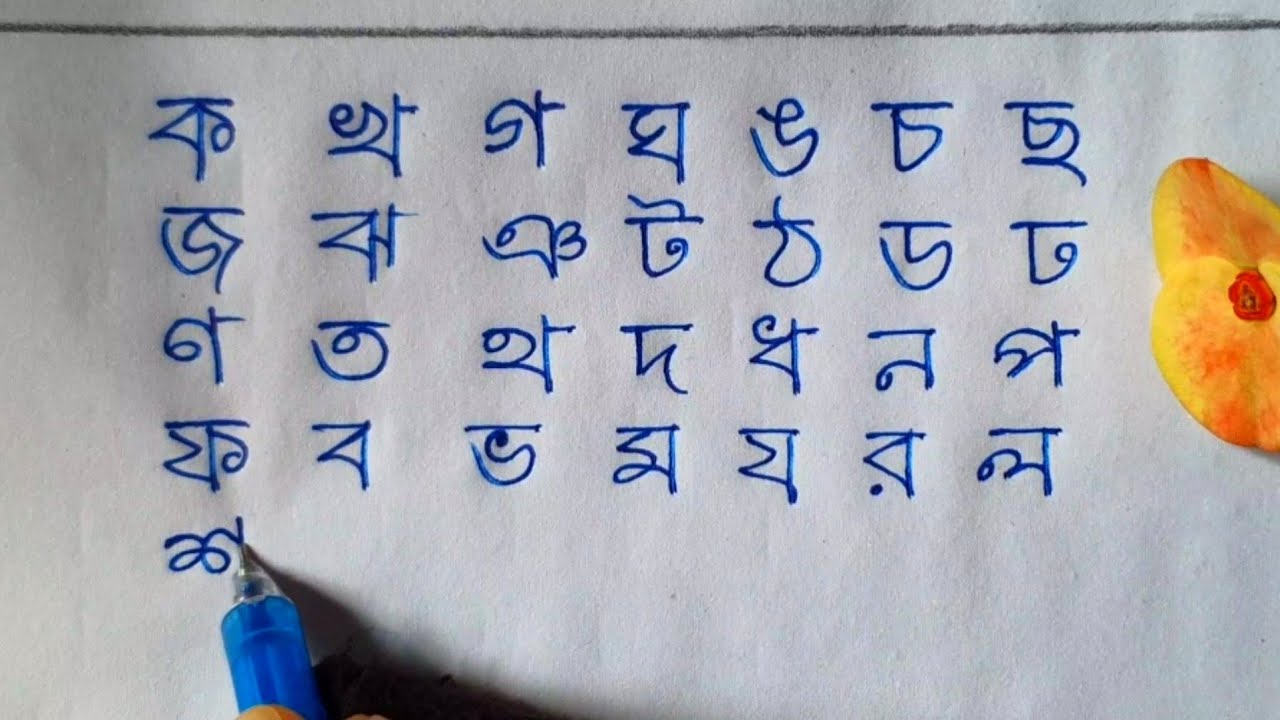 ক খ গ ঘ ঙ চ ছ
জ ঝ ঞ ট ঠ ড ঢ
ণ ত থ দ ধ ন প
ফ ব ভ ম য র ল
শ